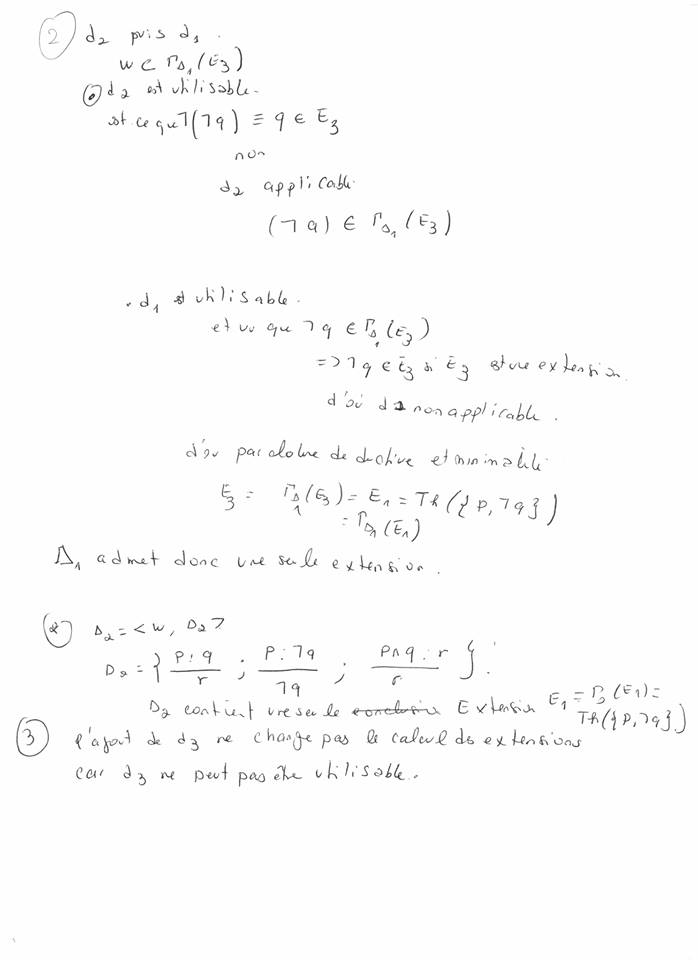 ② d₂ puis d₁.
W ⊂ Γ_Δ₁(E₃)
⊙ d₂ est utilisable.
est ce que ¬(¬q) ≡ q ∈ E₃
non
d₂ applicable
(¬q) ∈ Γ_Δ₁(E₃)
. d₁ est utilisable.
et vu que ¬q ∈ Γ_Δ₁(E₃)
=> ¬q ∈ E₃ si E₃ est une extension.
d'où d₁ non applicable.
d'où par cloture deductive et minimalité
E₃ = Γ_Δ₁(E₃) = E₁ = Th({p, ¬q})
= Γ_Δ₁(E₁)
Δ₁ admet donc une seule extension.
Δ₂ = < W, D₂ >
D₂ = { P : q / r ; P : ¬q / ¬q ; P∧q : r / r }.
D₂ contient une seule Extension E₁ = Γ(E₁) =
Th({p, ¬q})
③ l'ajout de d₃ ne change pas le calcul des extensions
car d₃ ne peut pas être utilisable.